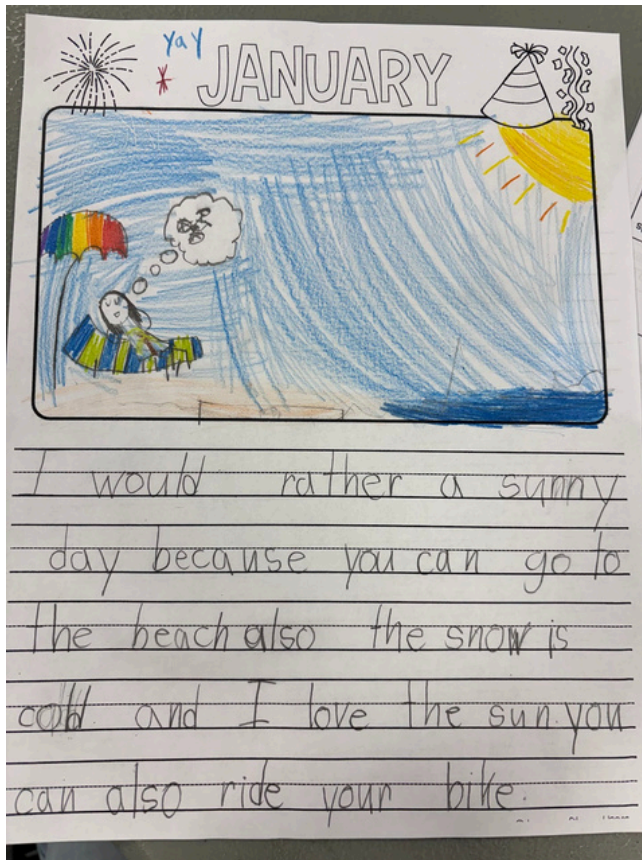 yay
JANUARY
I would rather a sunny
day because you can go to
the beach also the snow is
cold and I love the sun. you
can also ride your bike.